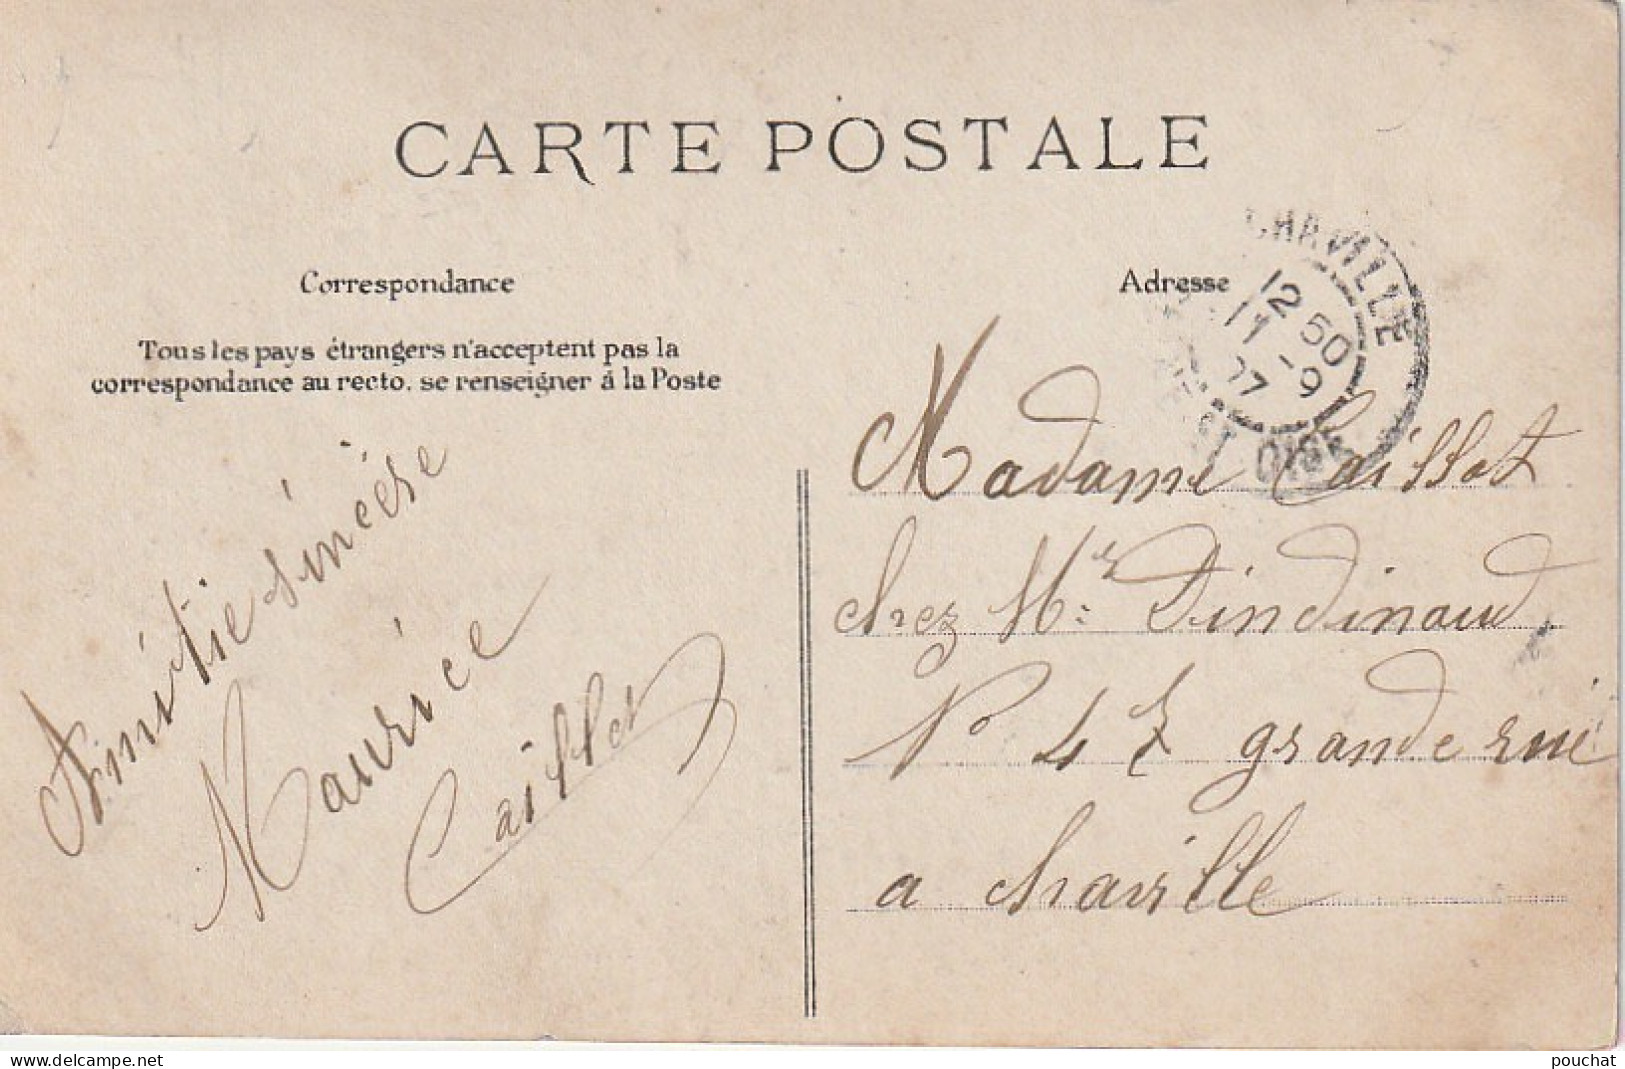 CARTE POSTALE
Correspondance
Tous les pays étrangers n'acceptent pas la
correspondance au recto. se renseigner à la Poste
Amitié sincère
Maurice
Caillot
Adresse
CHAVILLE
12 50
11 -9
07
ET OISE
Madame Caillot
chez Mr Dindinaud
N° 47 grande rue
a chaville
www.delcampe.net
pouchat